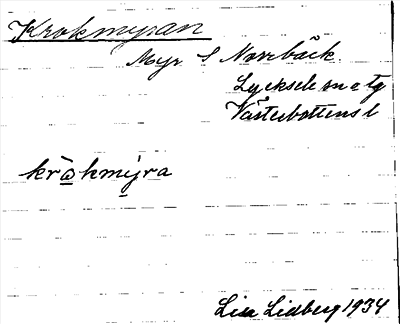 Krokmyran
Myr S Norrbäck.
Lycksele sn o tg
Västerbottens l
krò̱kmý̱ra
Lisa Lidberg 1934